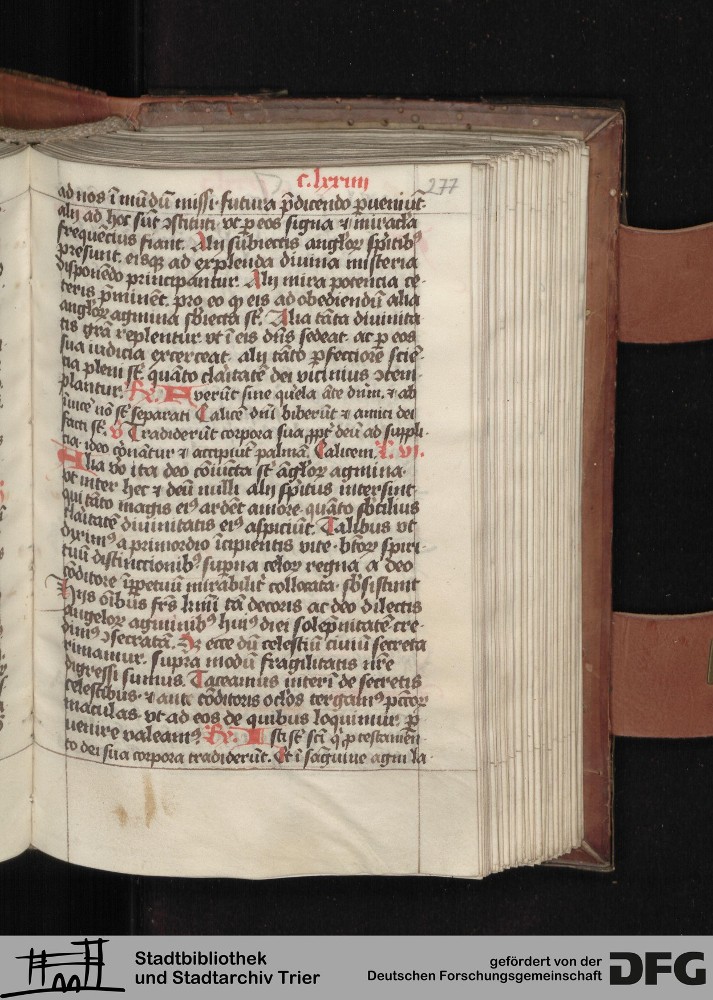 c. lxxiiii
277
ad nos ī mūdū missi · futura p̄dicendo ꝑueniūt ·
alij ad hoc sūt ꝯstituti · vt ꝑ eos signa ⁊ miracla
frequēcius fiant. Alij sūbiectis angloꝝ sp̄itibꝰ
presunt · eisqꝫ ad explenda diuina misteria
disponēdo principantur. Alij mira potencia ce-
teris p̄minēt. pro eo qꝫ eis ad obediendū alia
angloꝝ agmina sb̄iecta st̄. Alia tāta diuinita-
tis gr̄a replentur vt ī eis dn̄s sedeat · ac ꝑ eos
sua iudicia exerceat · alij tāto ꝑfectiore sciē-
tia pleni st̄ · quāto claritatē dei vicinius ꝯtem-
plantur. Rx. Auerūt sine q̄rela āte dn̄m. ⁊ ab
īuicē nō st̄ separati Calicē dn̄i biberūt ⁊ amici dei
facti st̄. v̄ Tradiderūt corpora sua ꝓpt̄ deū ad suppli-
cia · ideo corōnātur ⁊ accipiūt palmā. Calicem. L. vi.
Alia vo ita deo cōiūcta st̄ āgloꝝ agmina ·
vt inter hec ⁊ deū nulli alij sp̄itus intersint ·
qui tāto magis eiꝰ ardēt amore · quāto sb̄tilius
claritatē diuinitatis eiꝰ aspiciūt. Talibus vt
diximꝰ a primordio īcipientis vite · btōꝝ spiri-
tuū distinctionibꝰ supna celoꝝ regna a deo
cōditore īꝑpetuū mirabilit̄ collocata · sb̄sistunt
Hijs oībus frs̄ km̄i tā decoris ac deo dilectis
angeloꝝ agminibꝰ huiꝰ diei solēpnitatē cre-
dimꝰ ꝯsecratā. Sꝫ ecce dū celestiū ciuiū secreta
rimamur. supra modū fragilitatis nr̄e
digressi sumus. Taceamus interī de secretis
celestibus · ⁊ ante cōditoris oclōs tergamꝰ pctōꝝ
maculas · vt ad eos de quibus loquimur ꝑ-
uenire valeamꝰ. Rx. Isti st̄ sc̄i q̄ ꝓ testamen-
to dei sua corpora tradiderūt. Et ī sāguine agni la-
Stadtbibliothek
und Stadtarchiv Trier
gefördert von der
Deutschen Forschungsgemeinschaft
DFG